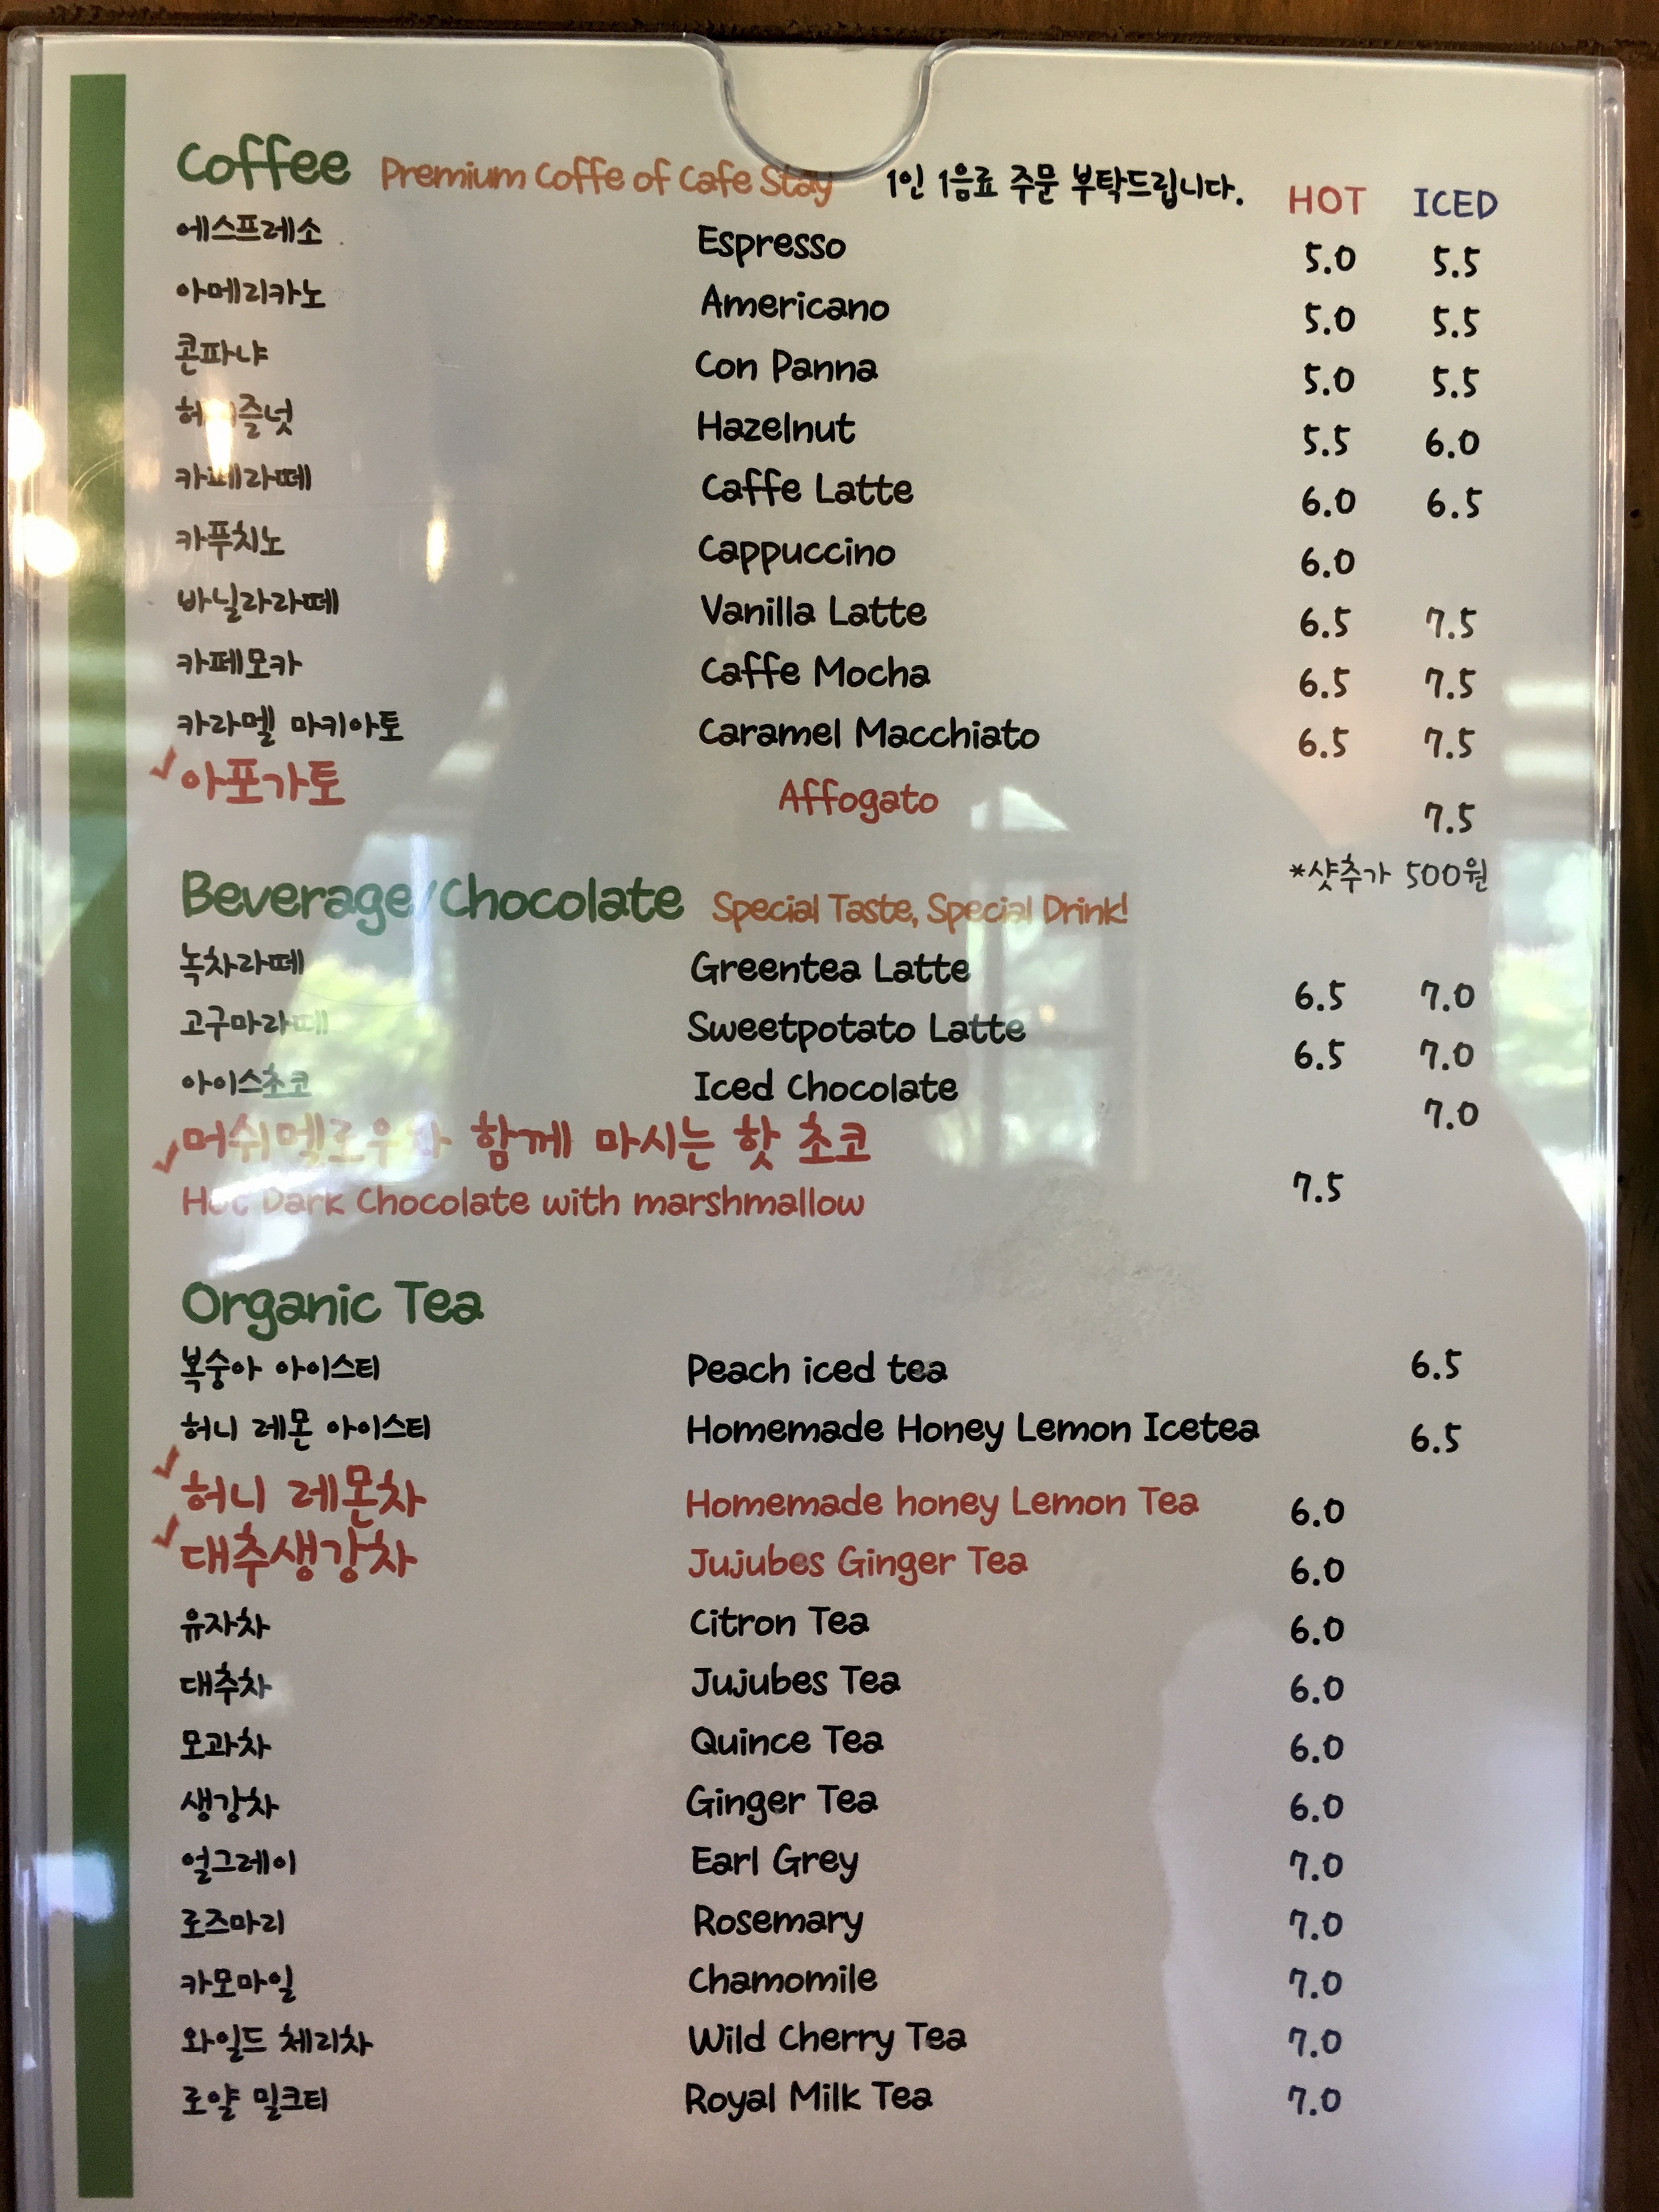 Coffee Premium Coffe of Cafe Stay 1인 1음료 주문 부탁드립니다. HOT ICED
에스프레소 Espresso 5.0 5.5
아메리카노 Americano 5.0 5.5
콘파냐 Con Panna 5.0 5.5
Hazelnut 5.5 6.0
카페라떼 Caffe Latte 6.0 6.5
카푸치노 Cappuccino 6.0
바닐라라떼 Vanilla Latte 6.5 7.5
카페모카 Caffe Mocha 6.5 7.5
카라멜 마키아토 Caramel Macchiato 6.5 7.5
아포가토 Affogato 7.5
*샷추가 500원
Beverage/Chocolate Special Taste, Special Drink!
녹차라떼 Greentea Latte 6.5 7.0
고구마라떼 Sweetpotato Latte 6.5 7.0
아이스초코 Iced Chocolate 7.0
머쉬멜로우와 함께 마시는 핫 초코
Hot Dark Chocolate with marshmallow 7.5
Organic Tea
복숭아 아이스티 Peach iced tea 6.5
허니 레몬 아이스티 Homemade Honey Lemon Icetea 6.5
허니 레몬차 Homemade honey Lemon Tea 6.0
대추생강차 Jujubes Ginger Tea 6.0
유자차 Citron Tea 6.0
대추차 Jujubes Tea 6.0
모과차 Quince Tea 6.0
생강차 Ginger Tea 6.0
얼그레이 Earl Grey 7.0
로즈마리 Rosemary 7.0
카모마일 Chamomile 7.0
와일드 체리차 Wild Cherry Tea 7.0
로얄 밀크티 Royal Milk Tea 7.0